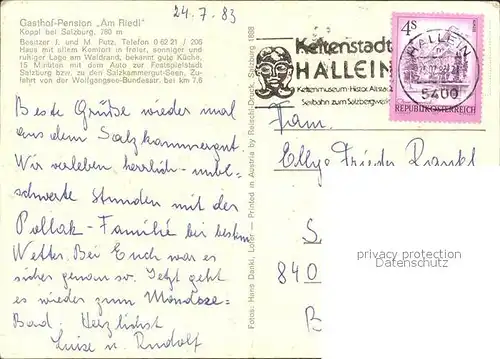 24.7.83
Gasthof-Pension "Am Riedl"
Koppl bei Salzburg, 780 m
Besitzer J. und M. Putz, Telefon 0 62 21 / 206
Haus mit allem Komfort in freier, sonniger und
ruhiger Lage am Waldrand, bekannt gute Küche,
15 Minuten mit dem Auto zur Festspielstadt
Salzburg bzw. zu den Salzkammergut-Seen. Zu-
fahrt von der Wolfgangsee-Bundesstr. bei km 7,6
Beste Grüße wieder mal
aus dem Salzkammergut.
Wir verleben herrlich-unbe-
schwerte Stunden mit der
Pollak-Familie bei bestem
Wetter. Bei Euch war es
sicher genau so. Jetzt geht
es wieder zum Mondsee-
Bad. Herzlichst
Luise u. Rudolf
Fotos: Hans Dankl, Lofer — Printed in Austria by
Keltenstadt
HALLEIN
Keltenmuseum-Histor. Altstadt
Seilbahn zum Salzbergwerk
4S
REPUBLIK ÖSTERREICH
HALLEIN
5400
Fam.
Elly u. Frieder
S
840
privacy protection
Datenschutz